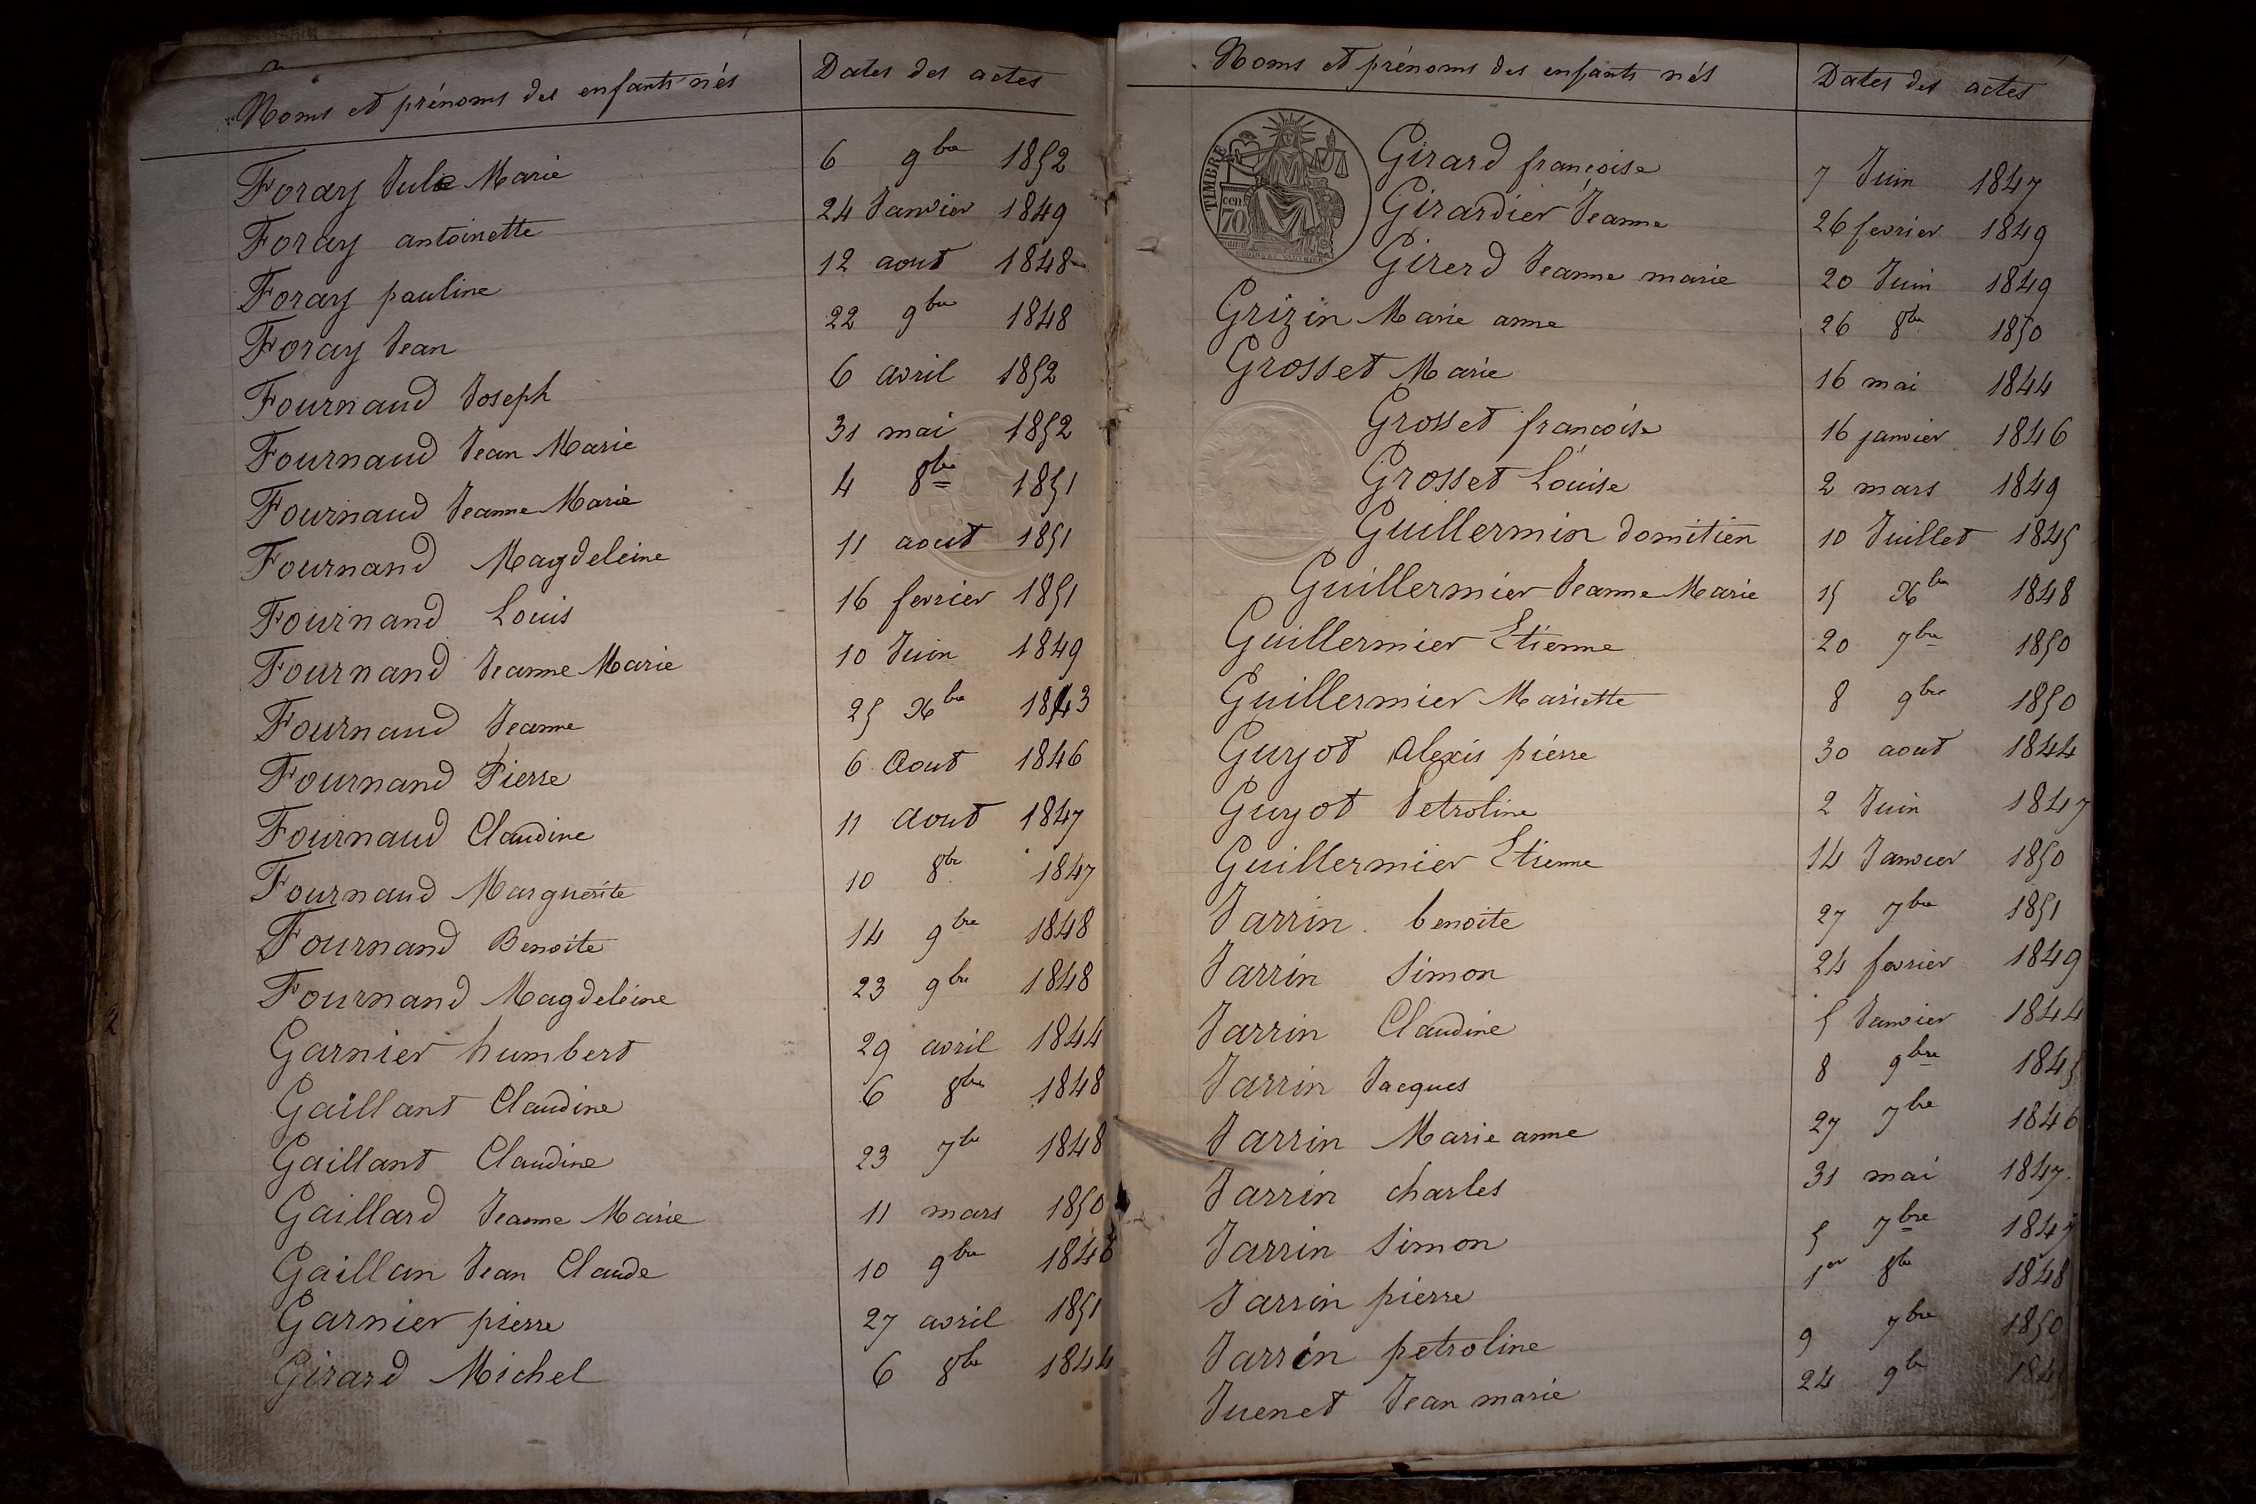 Noms et prénoms des enfants nés Dates des actes
Foray Jule Marie 6 9bre 1852
Foray antoinette 24 Janvier 1849
Foray pauline 12 aout 1848
Foray Jean 22 9bre 1848
Fournaud Joseph 6 avril 1852
Fournaud Jean Marie 31 mai 1852
Fournaud Jeanne Marie 4 8bre 1851
Fournand Magdeleine 11 aout 1851
Fournand Louis 16 fevrier 1851
Fournand Jeanne Marie 10 Juin 1849
Fournaud Jeanne 25 Xbre 1843
Fournand Pierre 6 Aout 1846
Fournaud Claudine 11 Aout 1847
Fournaud Marguerite 10 8bre 1847
Fournand Benoite 14 9bre 1848
Fournand Magdeleine 23 9bre 1848
Garnier humbert 29 avril 1844
Gaillant Claudine 6 8bre 1848
Gaillant Claudine 23 7bre 1848
Gaillard Jeanne Marie 11 mars 1850
Gaillan Jean Claude 10 9bre
Garnier pierre 27 avril 1851
Girard Michel 6 8bre 1844
Noms et prénoms des enfants nés Dates des actes
TIMBRE
70 cen
Girard françoise 7 Juin 1847
Girardier Jeanne 26 fevrier 1849
Girerd Jeanne marie 20 Juin 1849
Grizin Marie anne 26 8bre 1850
Grosset Marie 16 mai 1844
Grosset françoise 16 janvier 1846
Grosset Louise 2 mars 1849
Guillermin Domitien 10 Juillet 1845
Guillermier Jeanne Marie 15 Xbre 1848
Guillermier Etienne 20 7bre 1850
Guillermier Mariette 8 9bre 1850
Guyot Alexis pierre 30 aout 1844
Guyot Petroline 2 Juin 1847
Guillermier Etienne 14 Janvier 1850
Jarrin benoite 27 7bre 1851
Jarrin Simon 24 fevrier 1849
Jarrin Claudine 5 Janvier 1844
Jarrin Jacques 8 9bre 1845
Jarrin Marie anne 27 7bre 1846
Jarrin charles 31 mai 1847
Jarrin Simon 5 7bre 1847
Jarrin pierre 1er 8bre 1848
Jarrin petroline 9 7bre 1850
Juenet Jean marie 24 9bre